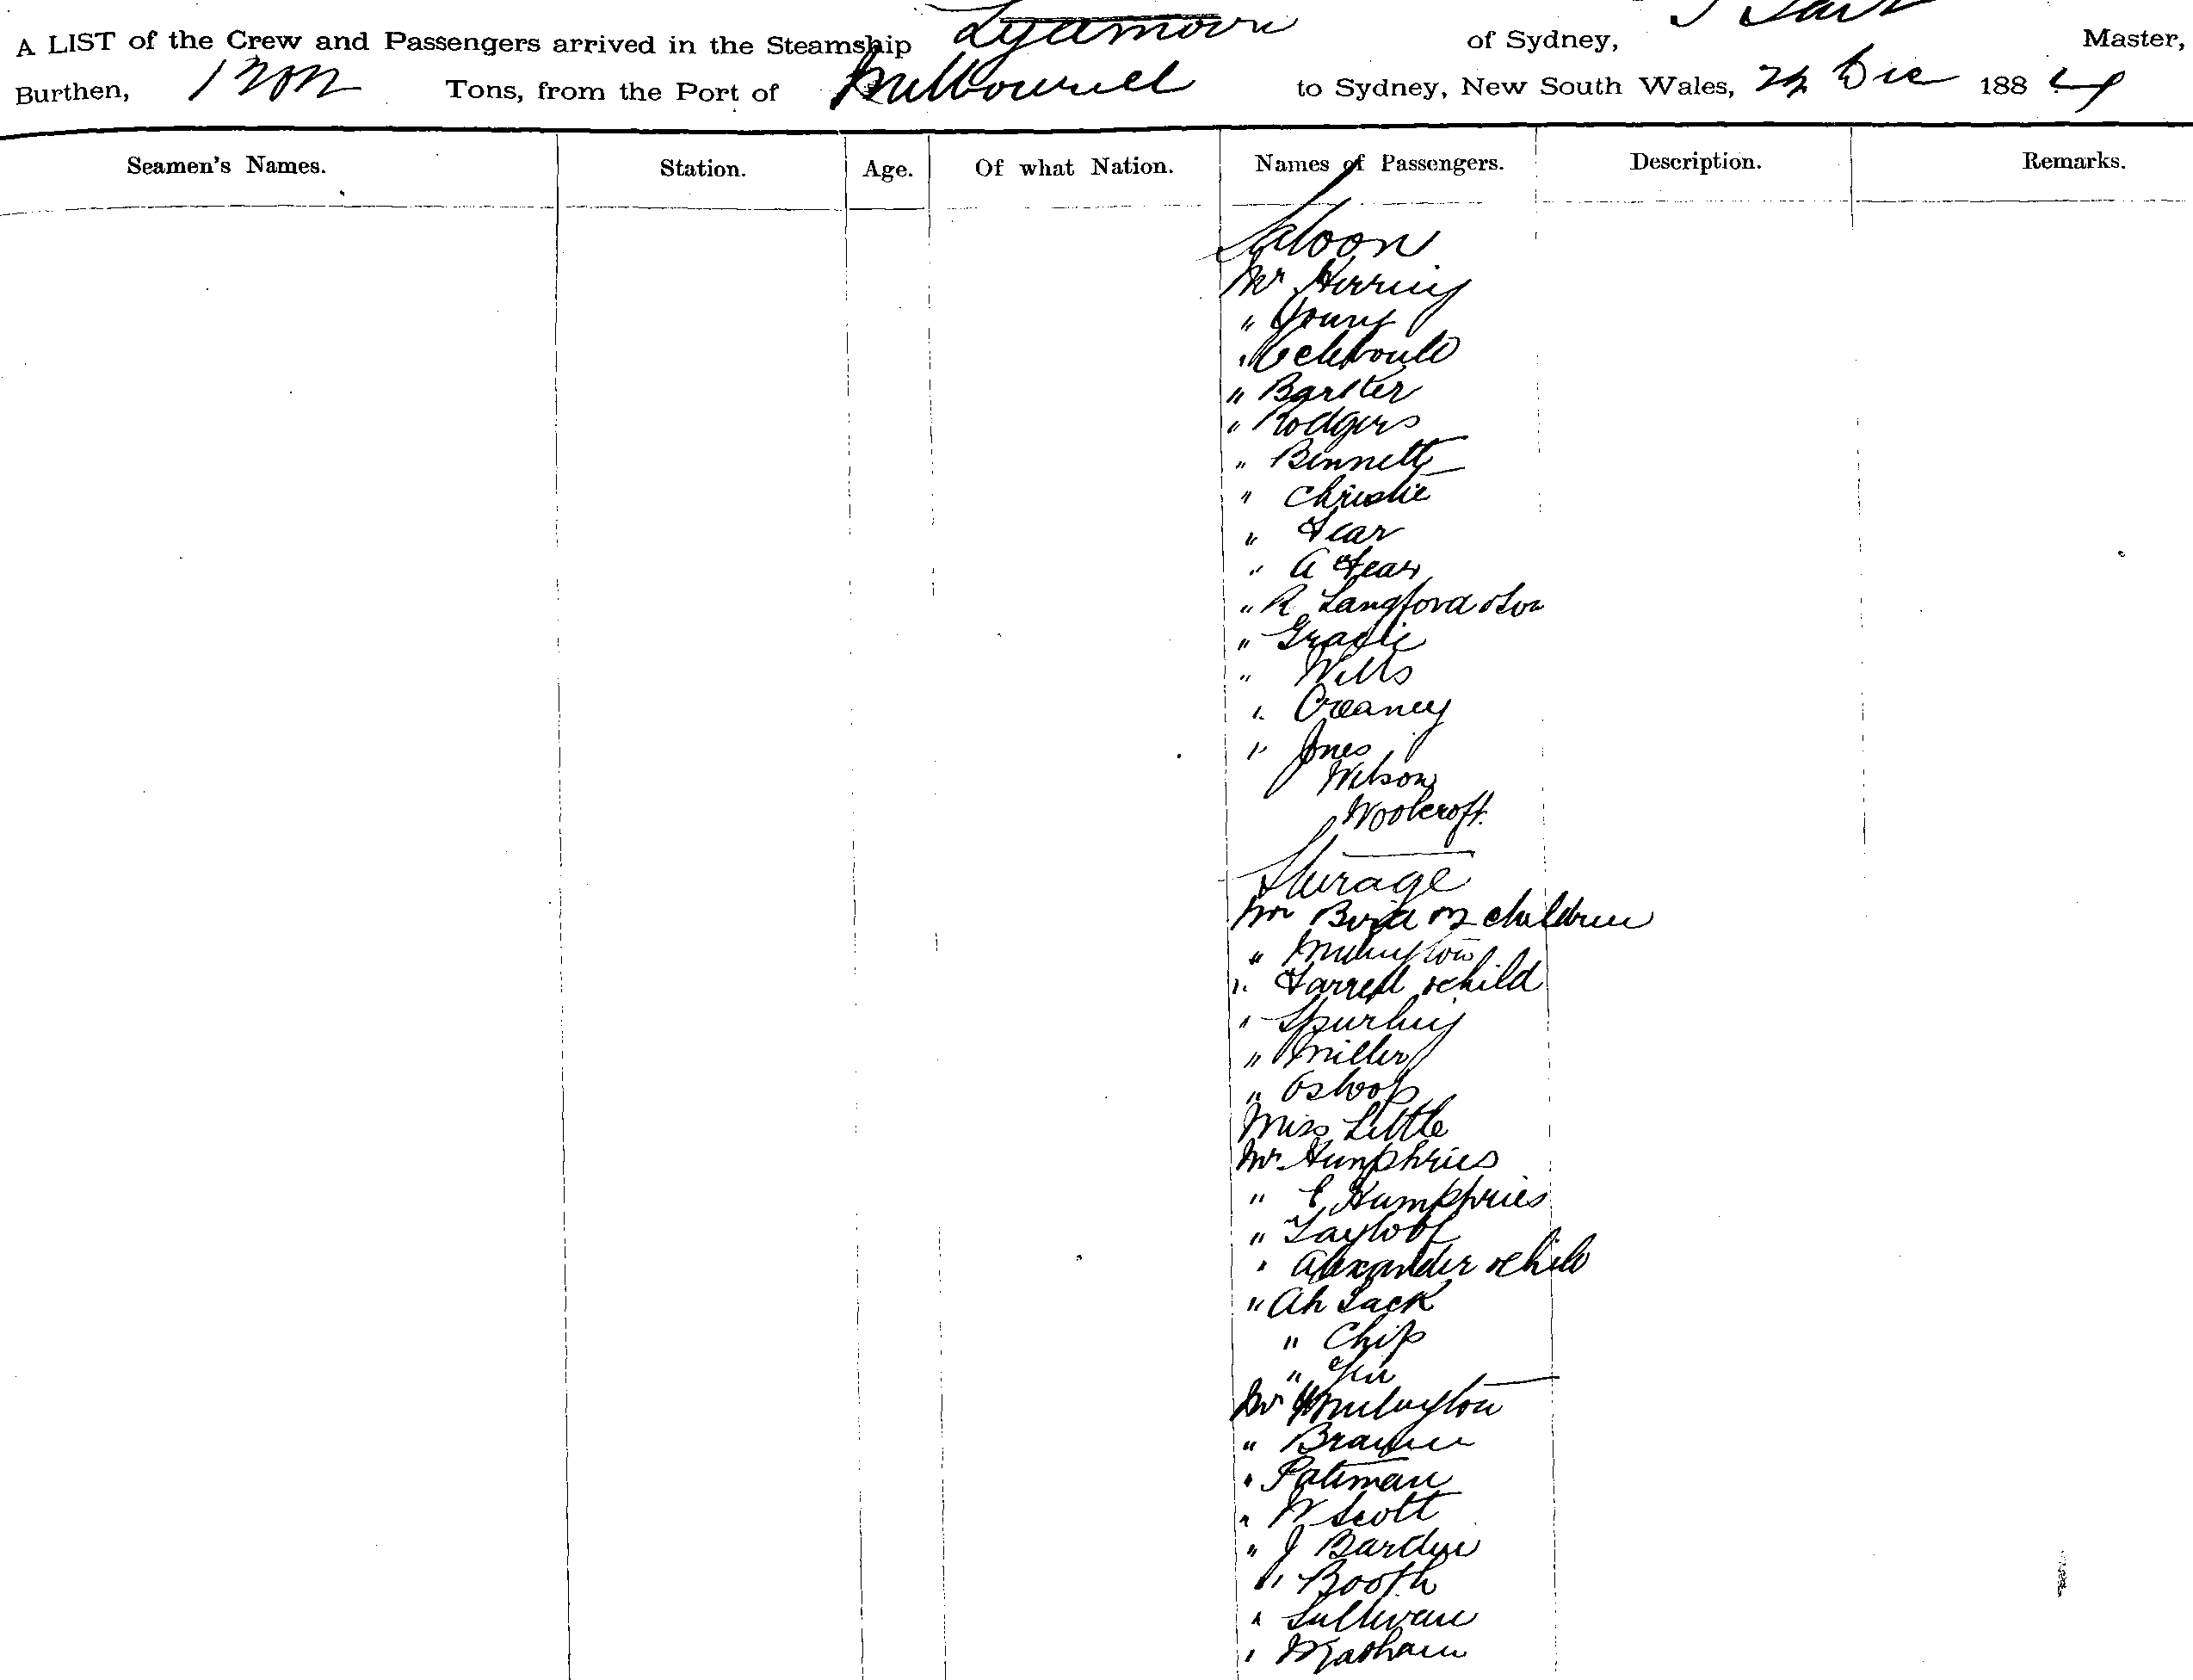 A LIST of the Crew and Passengers arrived in the Steamship of Sydney, Master,
Burthen, Tons, from the Port of Melbourne to Sydney, New South Wales, 24 Dec 1884
Seamen's Names. Station. Age. Of what Nation. Names of Passengers. Description. Remarks.
Saloon
Mr Herring
" Young
"
" Barker
" Rodgers
" Bennett
" Christie
" Fear
" A Fear
" R Langford & Son
" Gradie
" Wills
" Creaney
" Jones
Wilson
Woolcroft
Steerage
Mr children
"
" Farrell & child
" Spurling
" Miller
"
Miss Little
Mr Humphries
" E Humphries
" Taylor
" Alexander & child
" Ah Lack
" Chip
"
Mr
"
" Pateman
" W Scott
" J
" Booth
" Sullivan
"